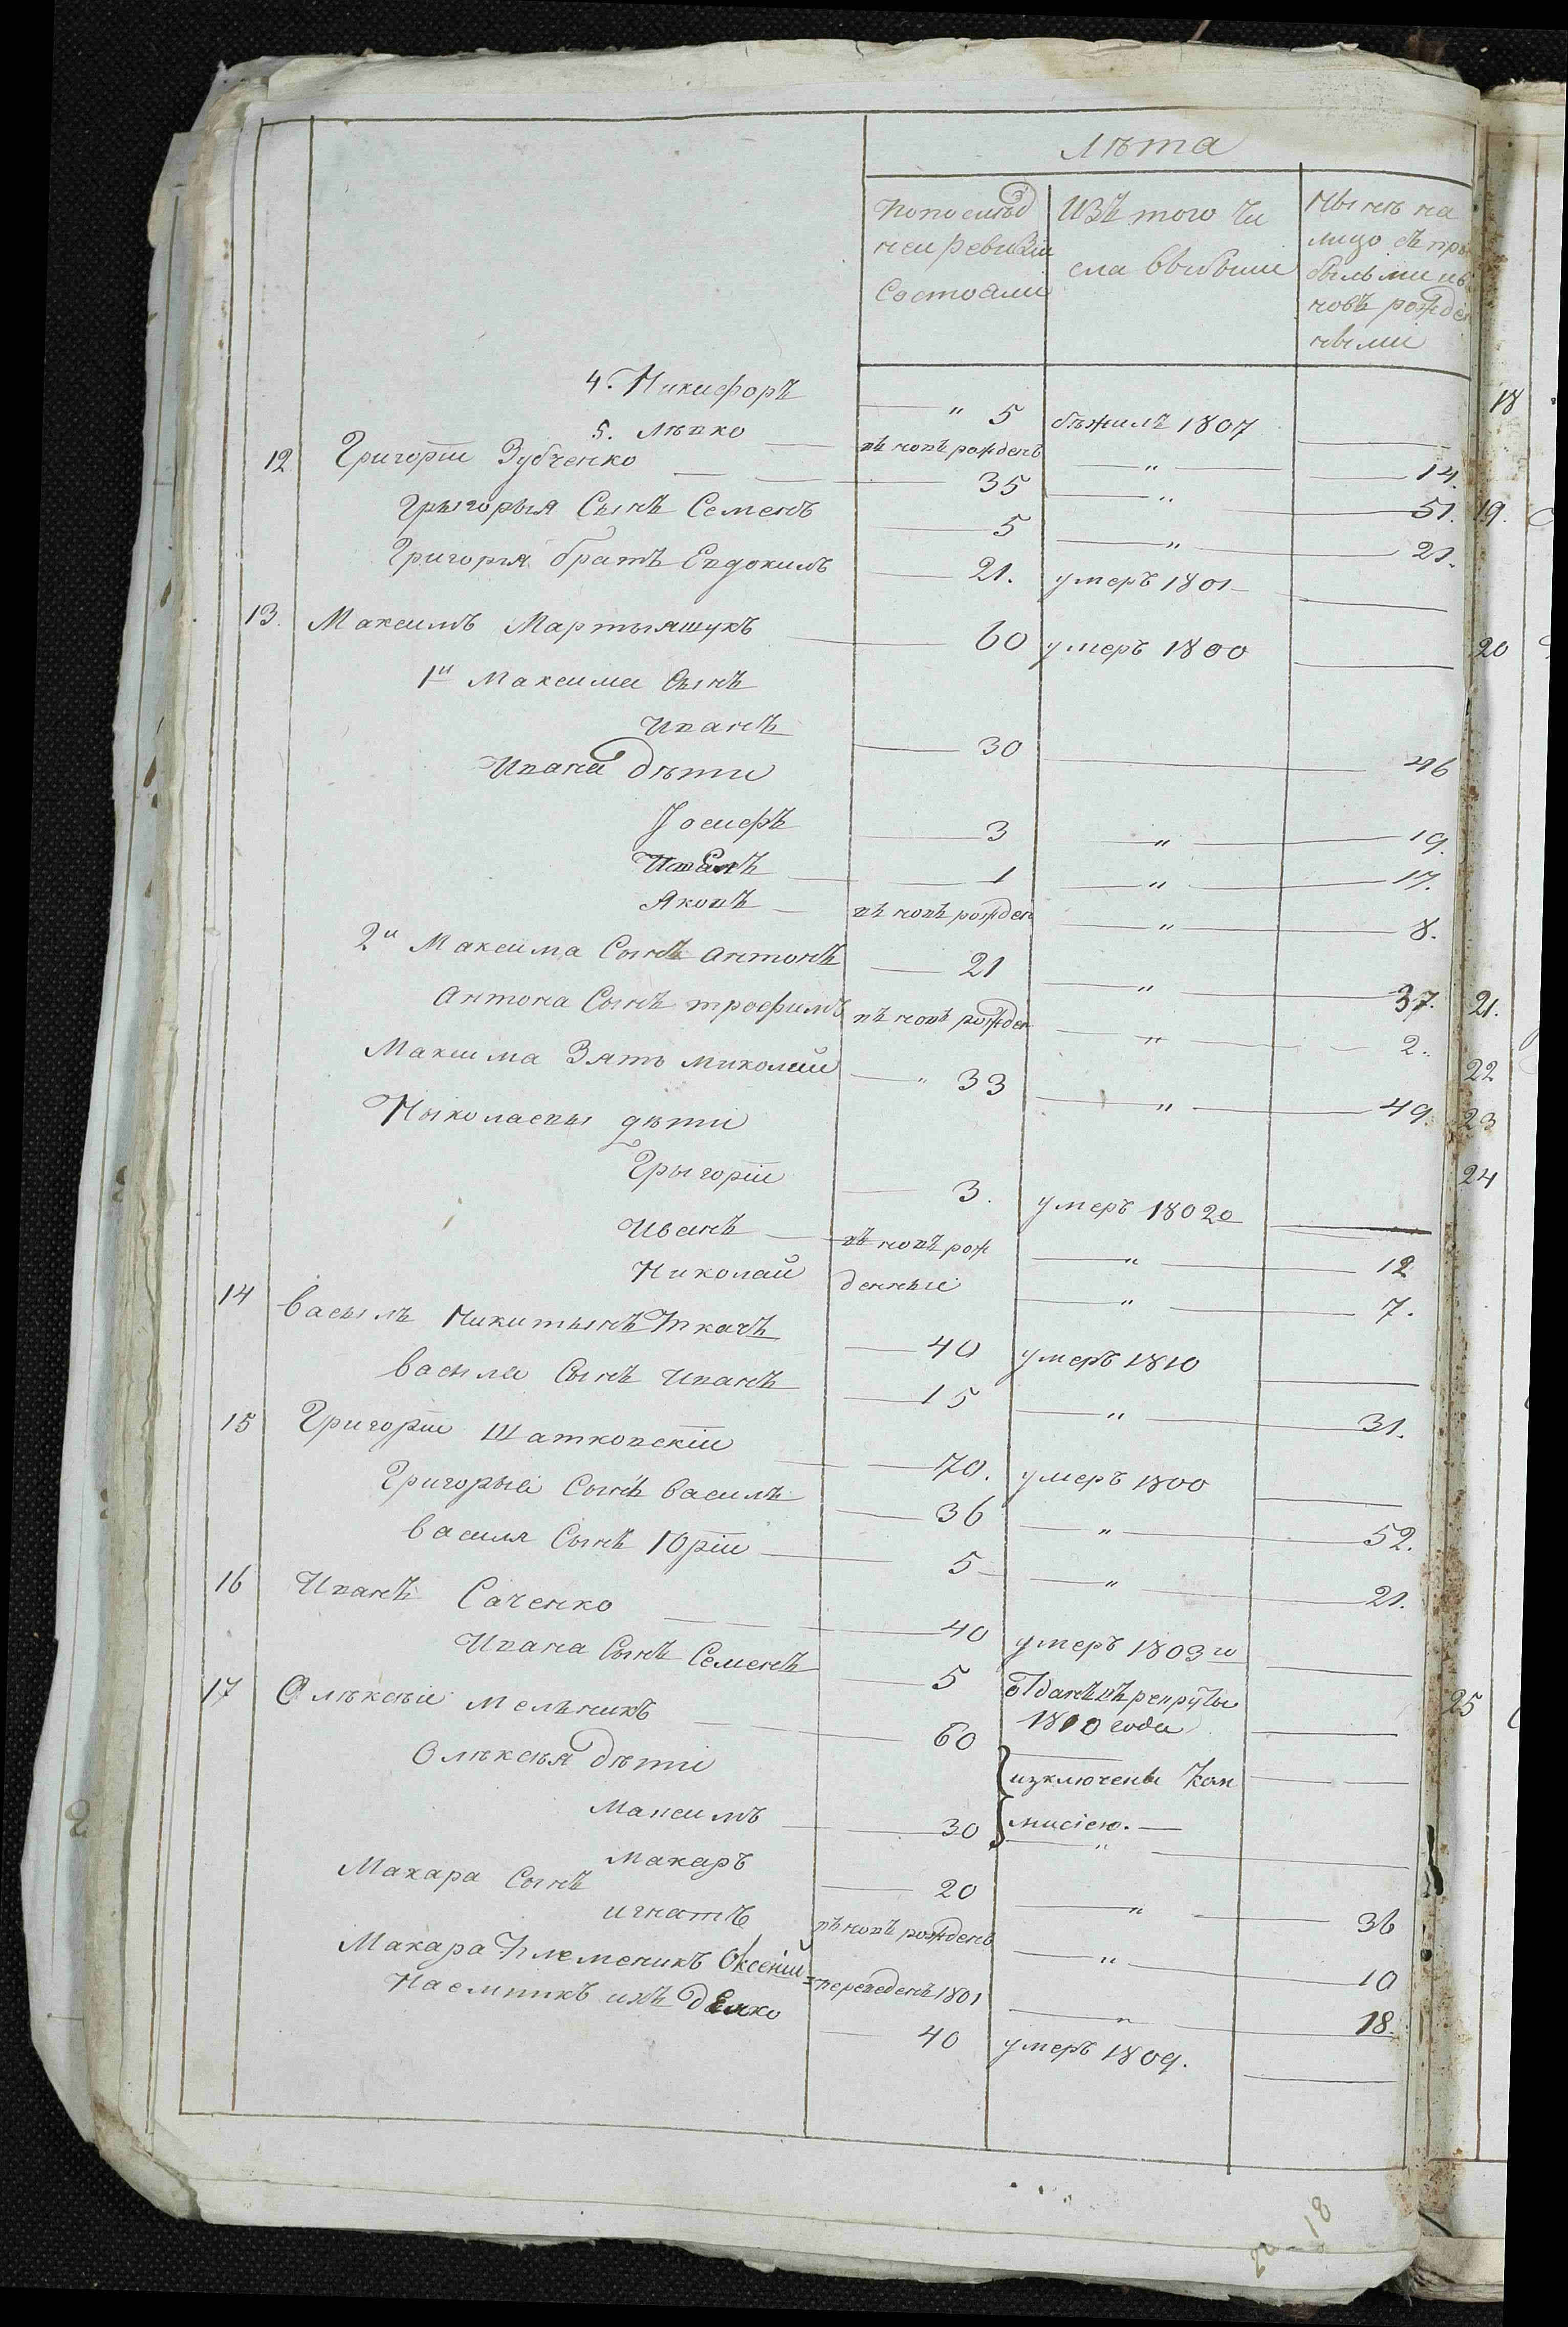 лѣта
попослѣд
ней ревизіи
состояли
Изъ того чи
сла выбыли
нынѣ на
лицо съ при
былыми и в
новъ рожден
ными
4. Никифоръ — " 5 бѣжилъ 1807 —
5. Лѣвко — въ новѣ рожденъ — " — 14.
12 Григоріи Зубченко — 35 — " — 51.
Грыгорыя Сынъ Семенъ — 5 — " — 21.
Григорія братъ Евдокимъ — 21. умеръ 1801 —
13. Максимъ Мартыяшукъ — 60 умеръ 1800 —
1й Максима Сынъ
Иванъ — 30 — 46
Ивана дѣти
Іосифъ — 3 — " — 19.
— 1 — " — 17.
Яковъ — въ новѣ рожден — " — 8.
2й Максима Сынъ Антонъ — 21 — " — 37.
Антона Сынъ трофимъ въ новѣ рожден — " — 2.
Максима Зять Миколай — " 33 — " — 49.
Ныколаевы дѣти
Грыгоріи — 3. умеръ 1802го —
Иванъ — въ новѣ рож — " — 12
Николай денныи — " — 7.
14 Васылъ Никитынъ Ткачъ — 40 умеръ 1810 —
Васыля Сынъ Иванъ — 15 — " — 31.
15 Григоріи Шатковскіи — 70. умеръ 1800 —
Григорыя Сынъ Василъ — 36 — " — 52.
Василя Сынъ Юріи — 5 — " — 21.
16 Иванъ Саченко — 40 умеръ 1803го —
Ивана Сынъ Семенъ — 5 отданъ въ рекруты
1810 года —
17 Олѣксѣи Мелѣникъ — 60 —
Олѣксѣя дѣти изключены Ком
Максимъ — 30 мисіею. —
Макаръ — 20 — " — 36
Макара Сынъ
игнатъ въ новѣ рожденъ — " — 10
Макара Племеникъ Оксеніи переведенъ 1801 — " — 18.
Наемникъ ихъ — 40 умеръ 1809. —
18
19.
20
21.
22
23
24
25
18